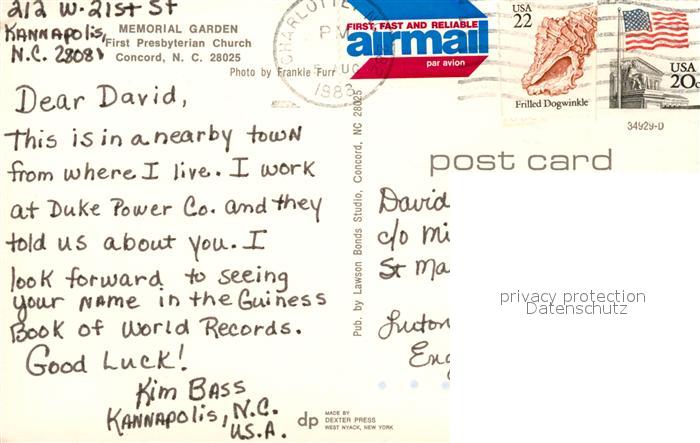 212 W. 21st St
Kannapolis,
N.C. 28081
MEMORIAL GARDEN
First Presbyterian Church
Concord, N. C. 28025
Photo by Frankie Furr
CHARLOTTE, N
PM
AUG
1983
FIRST, FAST AND RELIABLE
airmail
par avion
USA
22
Frilled Dogwinkle
USA
20c
34929-D
Dear David,
This is in a nearby town
from where I live. I work
at Duke Power Co. and they
told us about you. I
look forward to seeing
your name in the Guiness
Book of World Records.
Good Luck!
Kim Bass
Kannapolis, N.C.
U.S.A.
Pub. by Lawson Bonds Studio, Concord, NC 28025
post card
David
c/o Mi
St Ma
Luton
Eng
privacy protection
Datenschutz
dp
MADE BY
DEXTER PRESS
WEST NYACK, NEW YORK